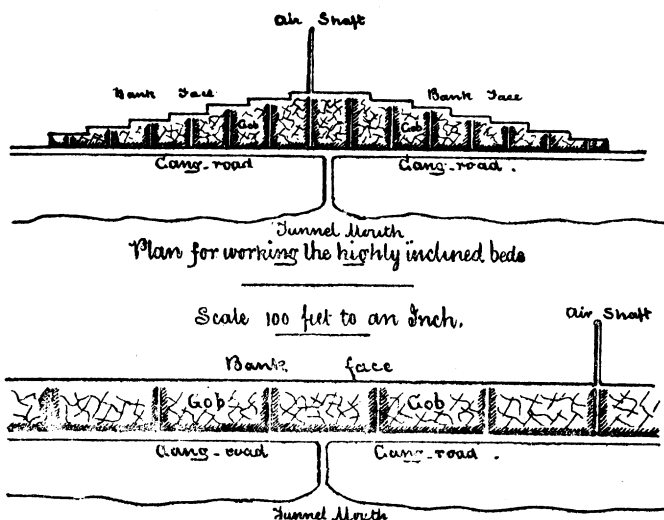 Air Shaft
Bank Face Bank Face
Gob Gob
Gang-road Gang-road.
Tunnel Mouth
Plan for working the highly inclined beds
Scale 100 feet to an Inch.
Air Shaft
Bank face
Gob Gob
Gang-road Gang-road.
Tunnel Mouth